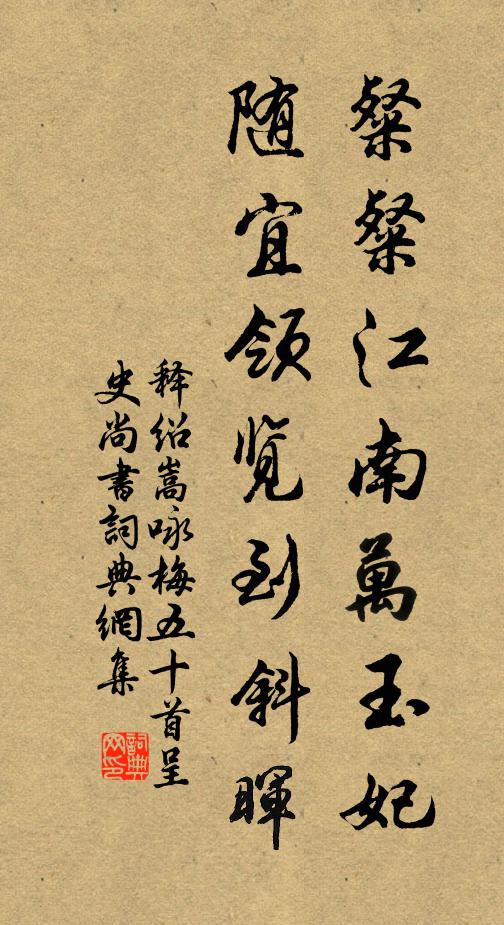 粲粲江南萬玉妃
随宜領覽到斜暉
释绍嵩咏梅五十首呈
史尚書詞典網集
詞典
网印